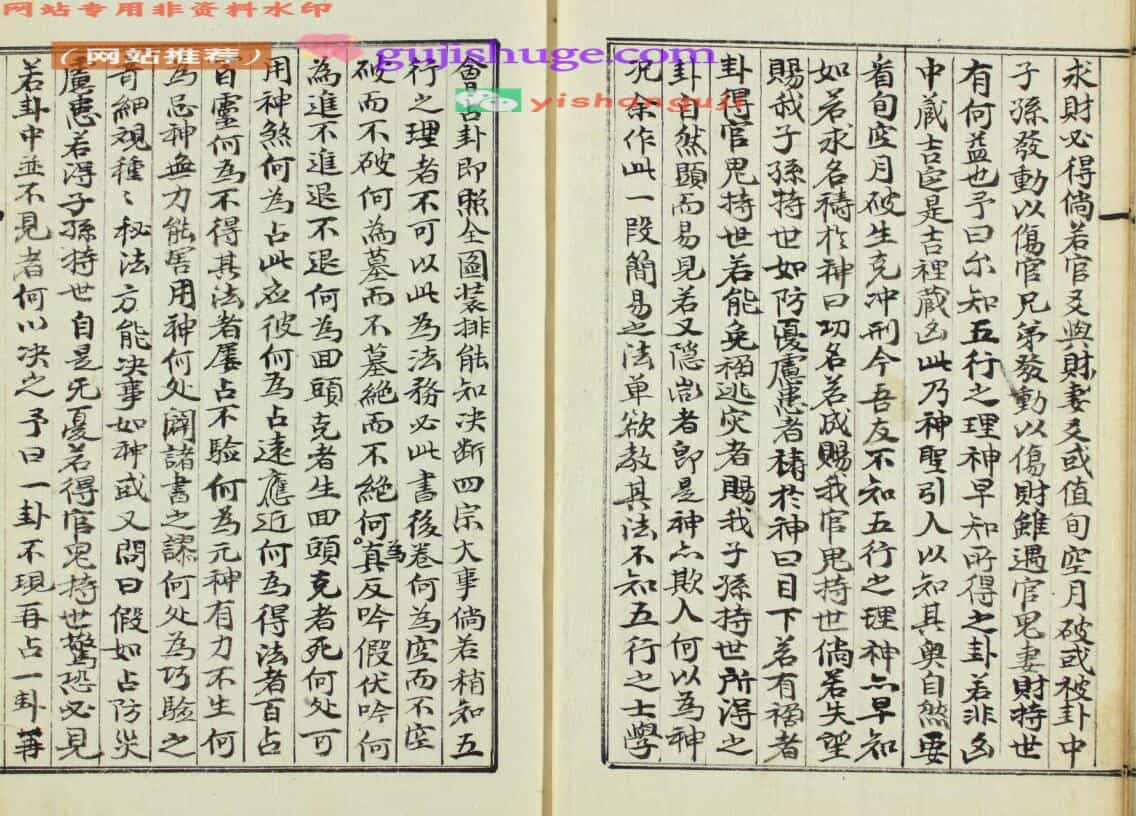 网站专用非资料水印
(网站推荐)
gujishuge.com
yishanguji
求財必得倘若官爻與財妻爻或值旬空月破或被卦中
子孫發動以傷官兄弟發動以傷財雖遇官鬼妻財持世
有何益也予曰尔知五行之理神早知所得之卦若非凶
中藏吉定是吉裡藏凶此乃神聖引人以知其奥自然要
看旬空月破生克冲刑今吾友不知五行之理神亦早知
如若求名禱於神曰功名若成賜我官鬼持世倘若失望
賜我子孫持世如防憂慮患者禱於神曰目下若有禍者
卦得官鬼持世若能免禍逃灾者賜我子孫持世所得之
卦自然顯而易見若又隠尚者即是神亦欺人何以為神
况余作此一段簡易之法單欲教其法不知五行之士學
會占卦即照全圖装排能知决断四宗大事倘若稍知五
行之理者不可以此為法務必此書後卷何為空而不空
破而不破何為墓而不墓絶而不絶何為真反吟假伏吟何
為進不進退不退何為回頭克者生回頭克者死何处可
用神煞何為占此应彼何為占遠應近何為得法者百占
百靈何為不得其法者屡占不驗何為元神有力不生何
為忌神無力能害用神何处闢諸書之謬何处為巧驗之
奇細視種〻秘法方能决事如神或又問曰假如占防災
慮患若得子孫持世自是无憂若得官鬼持世驚恐必見
若卦中並不見者何以决之予曰一卦不現再占一卦再